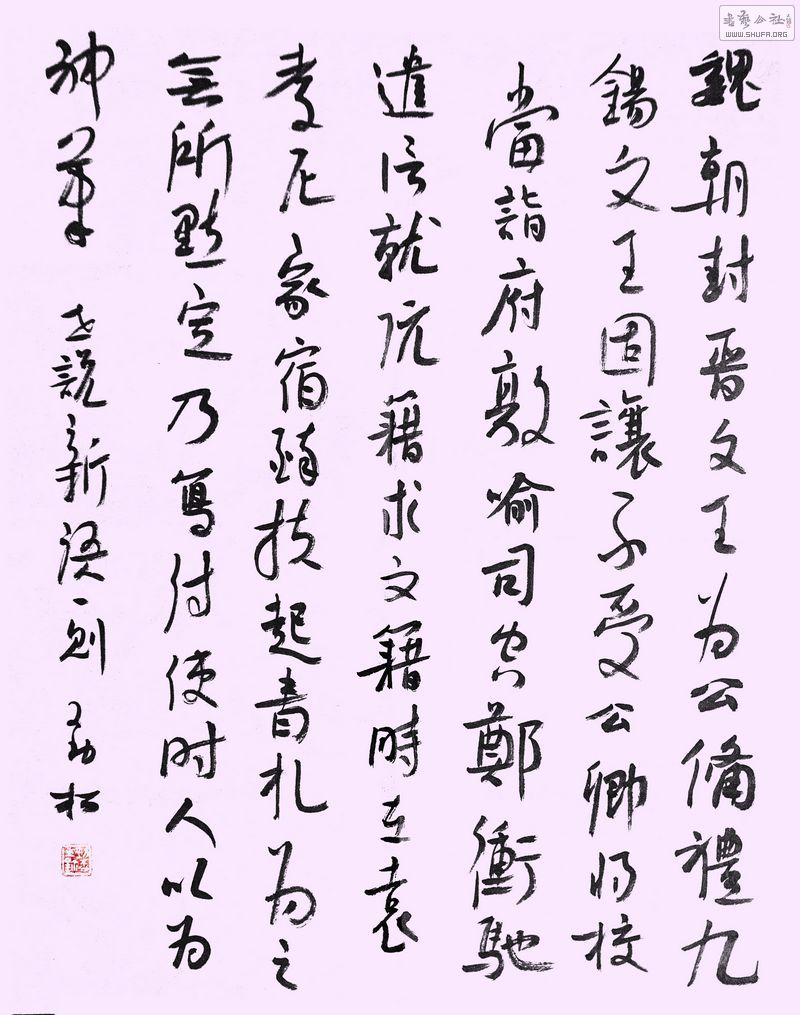 魏朝封晋文王为公備禮九
錫文王固讓不受公卿将校
當詣府敦喻司空鄭衝馳
遣信就阮籍求文籍時在袁
孝尼家宿醉扶起書札为之
無所點定乃寫付使时人以为
神筆 世説新語一則 王勁松
書藝公社
WWW.SHUFA.ORG